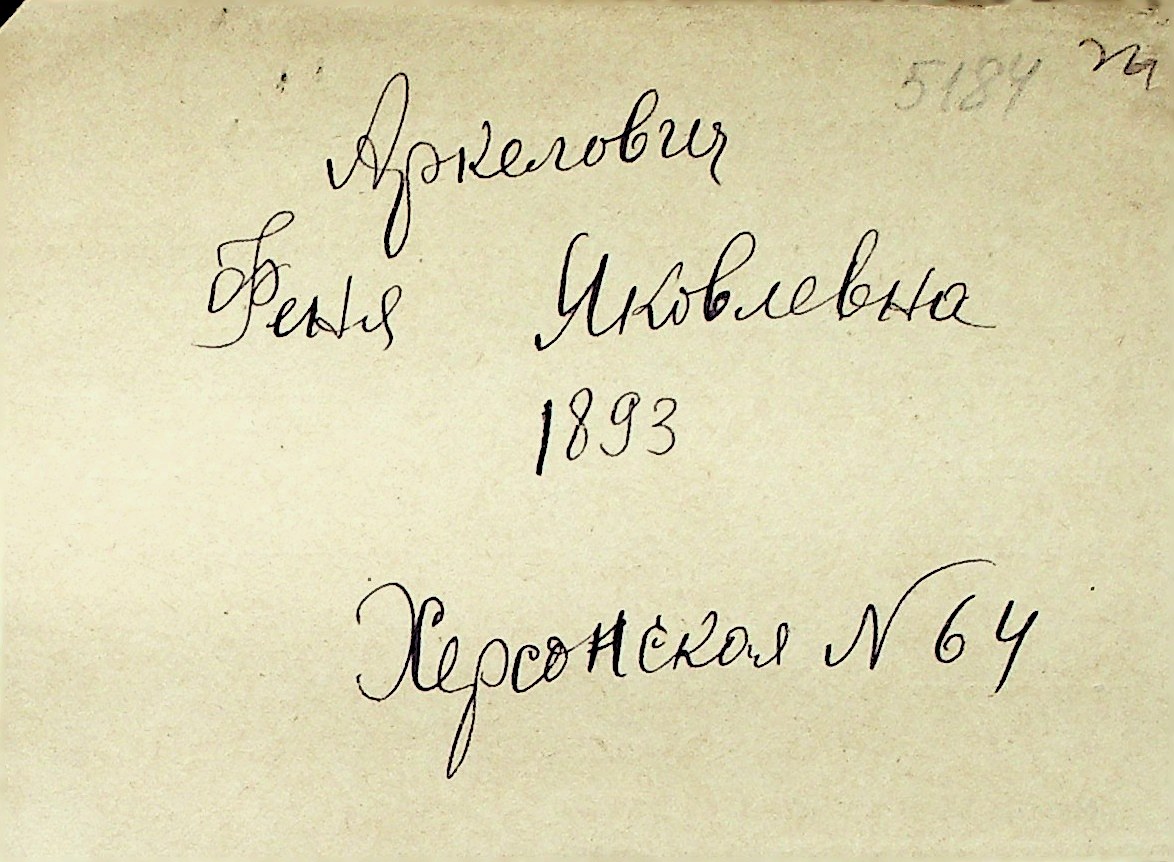 5184
Аркелович
Феня Яковлевна
1893
Херсонская N 64